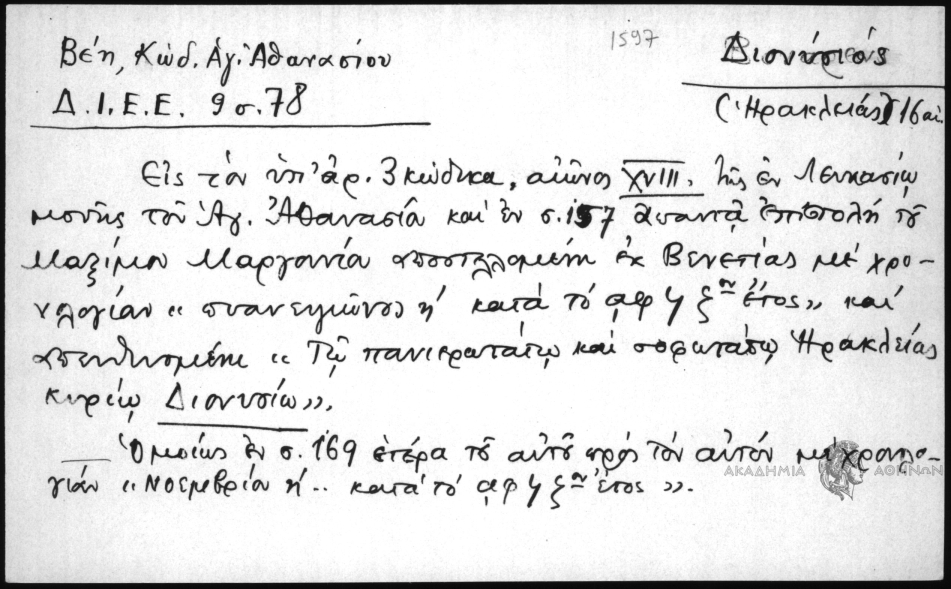 1597
Βέη, Κώδ. Ἁγ. Ἀθανασίου
Διονύσιος
Δ.Ι.Ε.Ε. 9 σ. 78
(Ἡρακλείας) 16 αἰ.
Εἰς τὸν ὑπ' ἀρ. 3 κώδικα, αἰῶνος XVIII, τῆς ἐν Λευκασίῳ
μονῆς τοῦ Ἁγ. Ἀθανασίου καὶ ἐν σ. 157 ἀπαντᾷ ἐπιστολὴ τοῦ
Μαξίμου Μαργουνίου ἀποστελλομένη ἐκ Βενετίας μὲ χρο-
νολογίαν « η' κατὰ τὸ αφϟζῳ ἔτος» καὶ
ἀπευθυνομένη «Τῷ πανιερωτάτῳ καὶ σοφωτάτῳ Ἡρακλείας
κυρίῳ Διονυσίῳ».
Ὁμοίως ἐν σ. 169 ἑτέρα τοῦ αὐτοῦ πρὸς τὸν αὐτὸν μὲ χρονολο-
γίαν «Νοεμβρίου η'.. κατὰ τὸ αφϟζῳ ἔτος».
ΑΚΑΔΗΜΙΑ ΑΘΗΝΩΝ